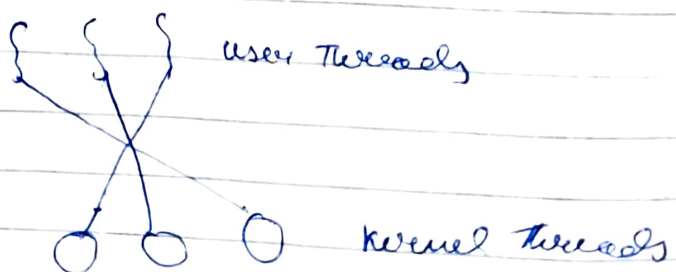 User Threads
Kernel Threads